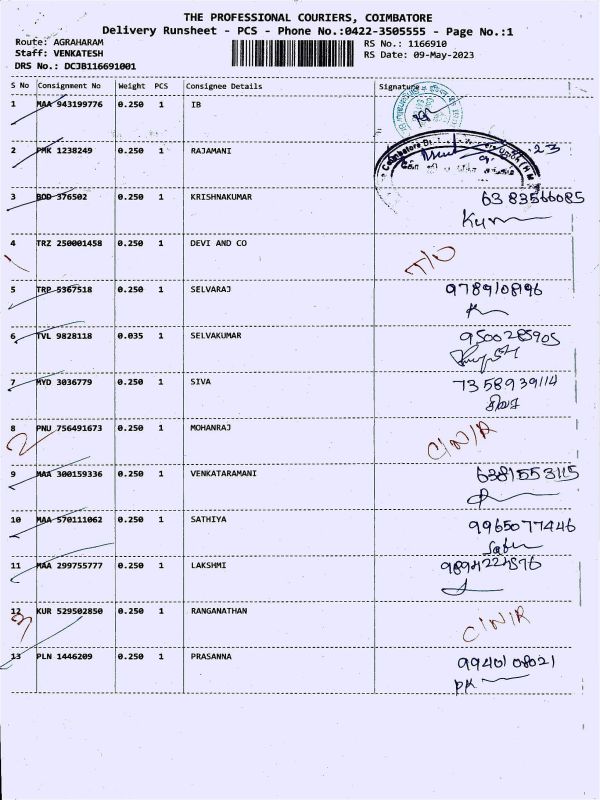 THE PROFESSIONAL COURIERS, COIMBATORE
Delivery Runsheet - PCS - Phone No.:0422-3505555 - Page No.:1
Route: AGRAHARAM RS No.: 1166910
Staff: VENKATESH RS Date: 09-May-2023
DRS No.: DCJB116691001
S No Consignment No Weight PCS Consignee Details Signature
1 MAA 943199776 0.250 1 IB
2 PMK 1238249 0.250 1 RAJAMANI 23
3 BOD 376502 0.250 1 KRISHNAKUMAR 6383566085
Kum
4 TRZ 250001458 0.250 1 DEVI AND CO T/O
1
5 TRP 5367518 0.250 1 SELVARAJ 9789108196
6 TVL 9828118 0.035 1 SELVAKUMAR 9500285905
7 MYD 3036779 0.250 1 SIVA 7358939114
சிவா
8 PNU 756491673 0.250 1 MOHANRAJ C/N/R
2
9 MAA 300159336 0.250 1 VENKATARAMANI 6381553115
10 MAA 570111062 0.250 1 SATHIYA 9965077446
11 MAA 299755777 0.250 1 LAKSHMI
12 KUR 529502850 0.250 1 RANGANATHAN C/N/R
3
13 PLN 1446209 0.250 1 PRASANNA 9940108021
PK